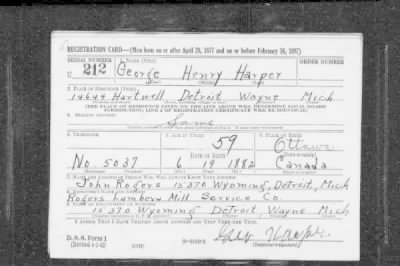 REGISTRATION CARD—(Men born on or after April 28, 1877 and on or before February 16, 1897)
SERIAL NUMBER 1. NAME (Print) ORDER NUMBER
U 212 George Henry Harper
2. PLACE OF RESIDENCE (Print)
14644 Hartwell Detroit Wayne Mich
[THE PLACE OF RESIDENCE GIVEN ON THE LINE ABOVE WILL DETERMINE LOCAL BOARD
JURISDICTION; LINE 2 OF REGISTRATION CERTIFICATE WILL BE IDENTICAL]
3. MAILING ADDRESS
Same
4. TELEPHONE 5. AGE IN YEARS 6. PLACE OF BIRTH
59 Ottawa
DATE OF BIRTH
No. 5037 6 19 1882 Canada
7. NAME AND ADDRESS OF PERSON WHO WILL ALWAYS KNOW YOUR ADDRESS
John Rogers 15370 Wyoming, Detroit, Mich
8. EMPLOYER'S NAME AND ADDRESS
Rogers Lumber & Mill Service Co.
9. PLACE OF EMPLOYMENT OR BUSINESS
15370 Wyoming Detroit Wayne Mich
I AFFIRM THAT I HAVE VERIFIED ABOVE ANSWERS AND THAT THEY ARE TRUE.
D. S. S. Form 1
(Revised 4-1-42) (over)
(Registrant's signature)